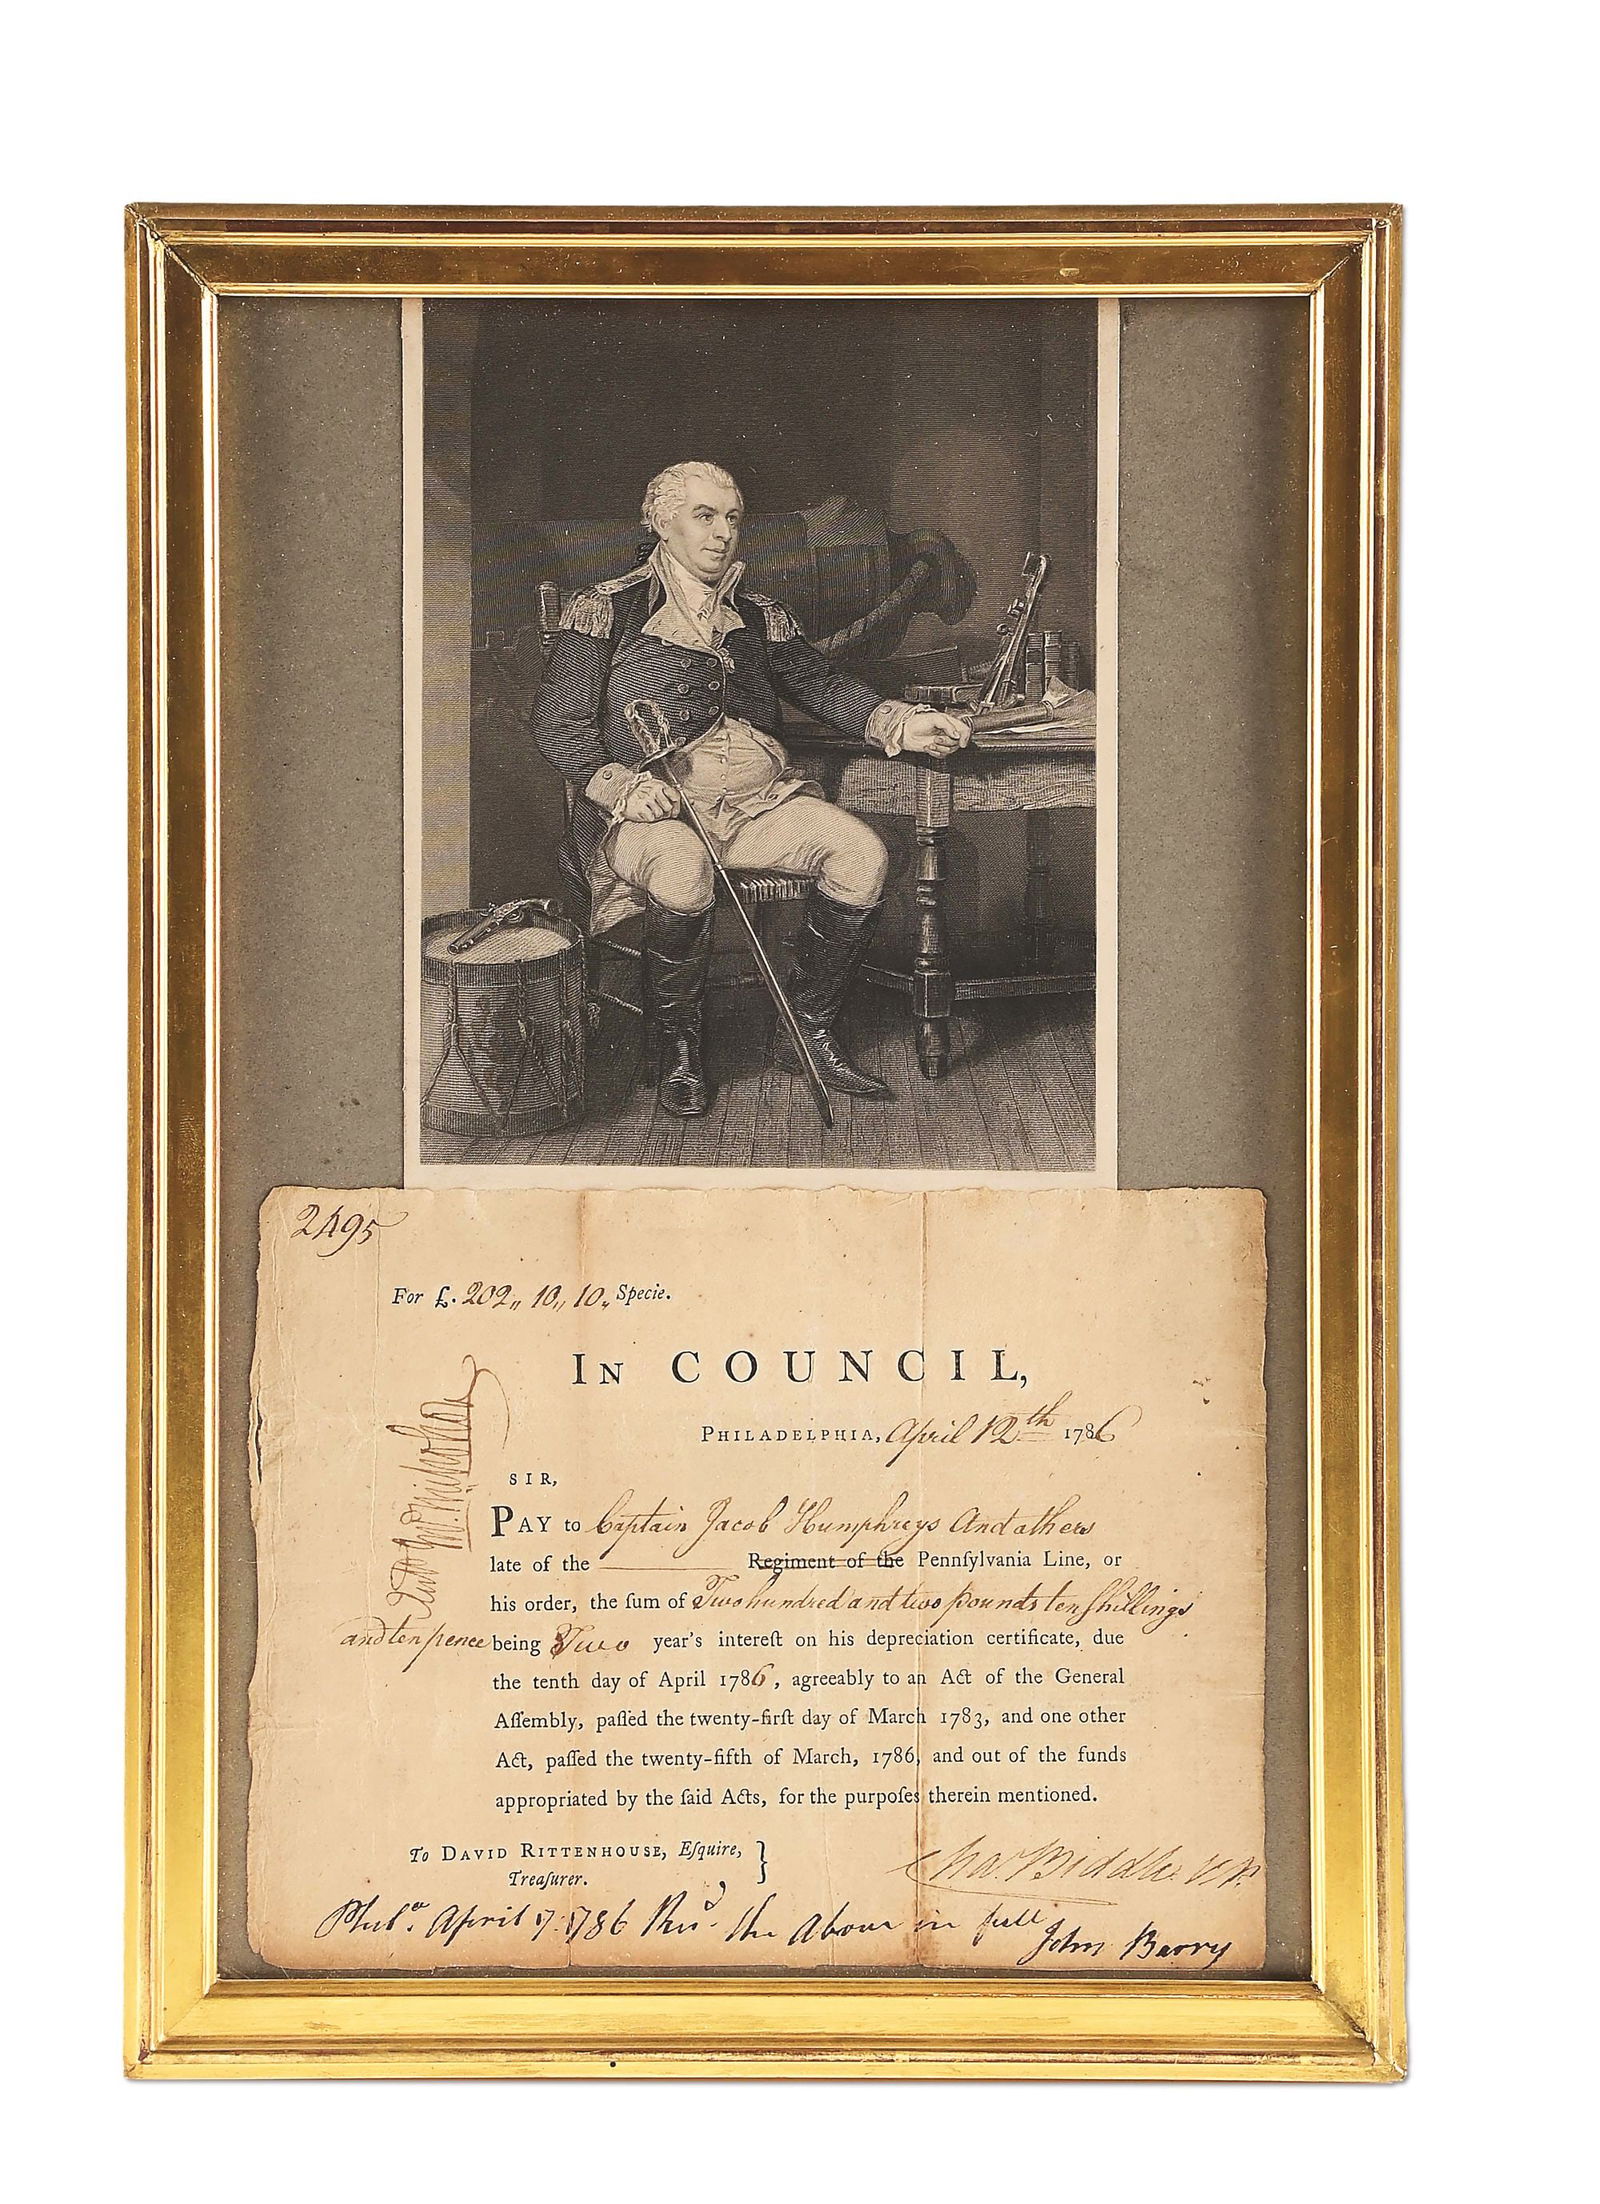 2495
For £. 202,, 10,, 10,, Specie.
In COUNCIL,
PHILADELPHIA, April 12th 1786
SIR,
PAY to Captain Jacob Humphreys And others
late of the Regiment of the Pennſylvania Line, or
his order, the ſum of Two hundred and two pounds ten ſhillings
and ten pence being Two year's intereſt on his depreciation certificate, due
the tenth day of April 1786, agreeably to an Act of the General
Aſſembly, paſſed the twenty-firſt day of March 1783, and one other
Act, paſſed the twenty-fifth of March, 1786, and out of the funds
appropriated by the ſaid Acts, for the purpoſes therein mentioned.
To DAVID RITTENHOUSE, Eſquire, }
Treaſurer.
Chas. Biddle V.P.
Phila. April 17 1786 Recd. the above in full
John Barry
Jno. Nicholson